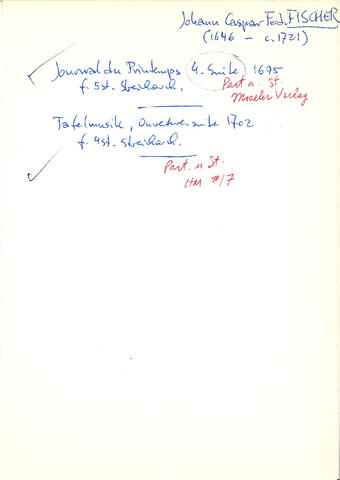 Johann Caspar Ferd. FISCHER
(1646 - c. 1721)
Journal du Printemps 4. Suite 1695
f. 5st. Streichorch.
Part u. St.
Moseler Verlag
Tafelmusik, Ouvertürensuite 1702
f. 4st. Streichorch.
Part. u St.
HM #17